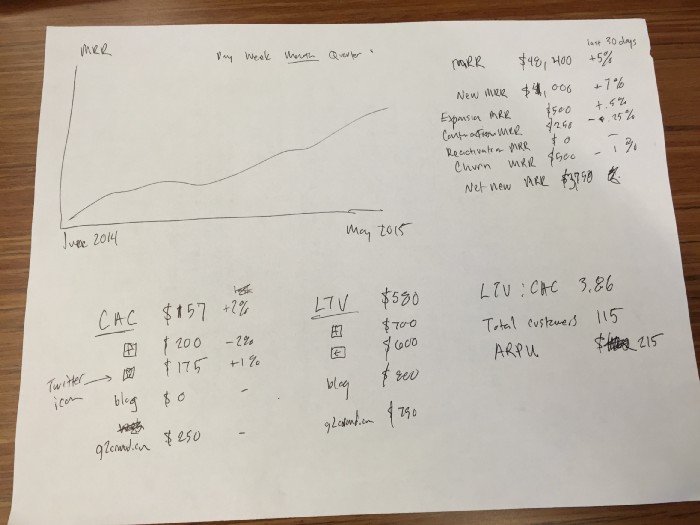 MRR
Day Week Month Quarter
June 2014
May 2015
last 30 days
MRR $48,400 +5%
New MRR $4,000 +7%
Expansion MRR $500 +.5%
Contraction MRR $250 -.25%
Reactivation MRR $0 -
Churn MRR $500 - 1%
Net new MRR $3,750
CAC $157 +2%
$200 -2%
Twitter icon
$175 +1%
blog $0 -
g2crowd.com $250 -
LTV $580
$700
$600
blog $800
g2crowd.com $790
LTV : CAC 3.86
Total customers 115
ARPU $ 215